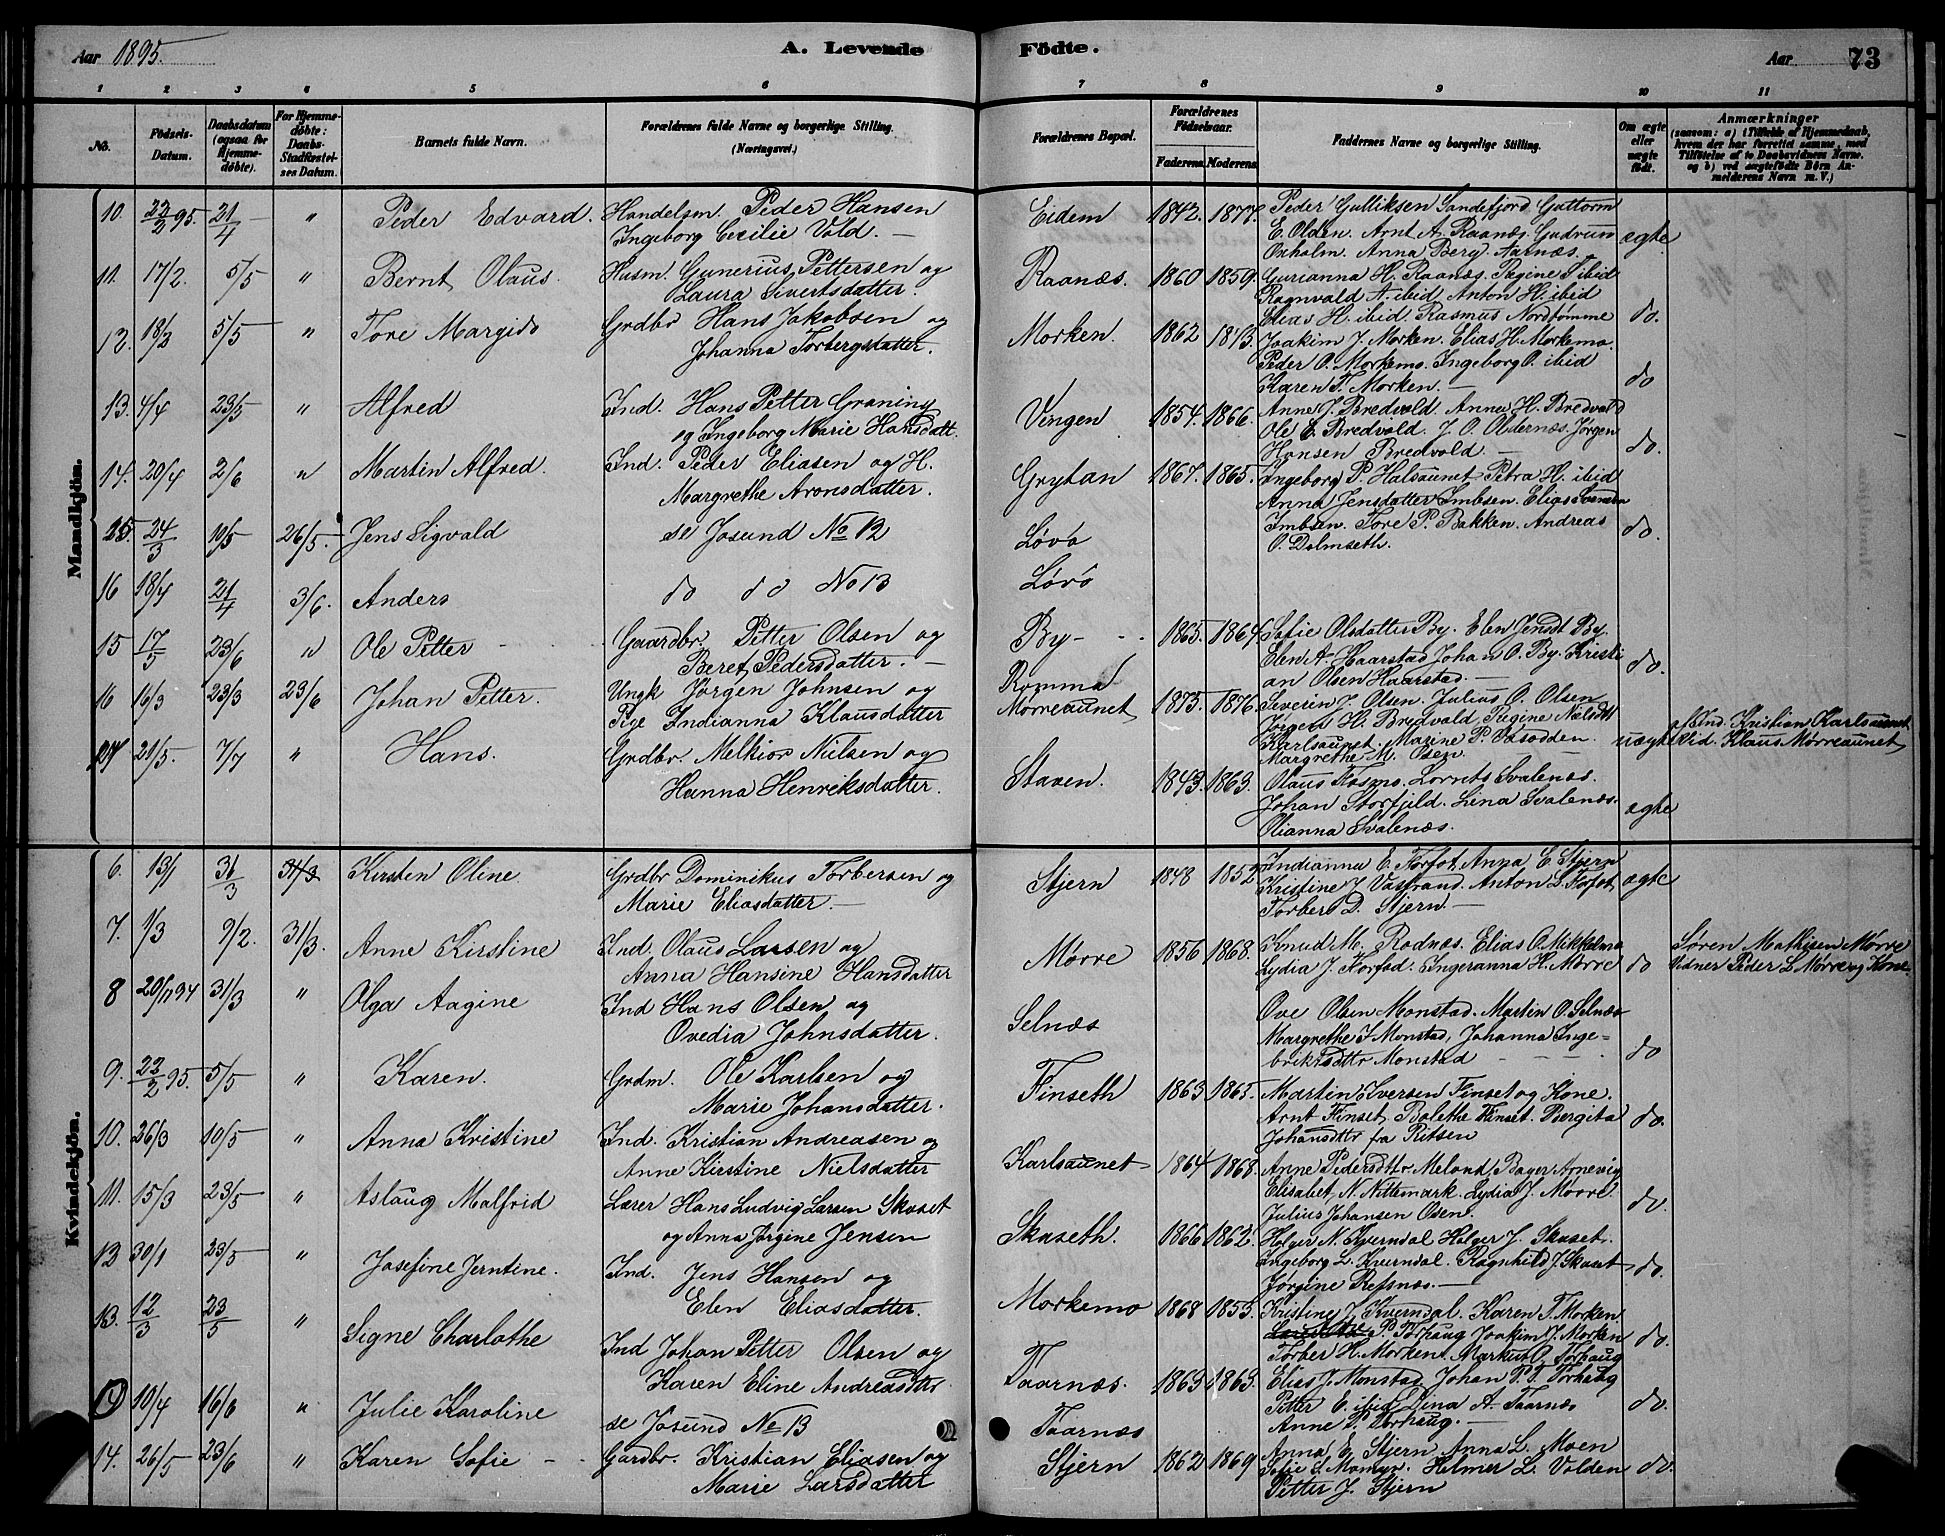 Aar 1895.
A. Levende Födte.
Aar 73
1 2 3 4 5 6 7 8 9 10 11
No.
Födsels-Datum.
Daabsdatum (ogsaa for Hjemmedöbte).
For Hjemmedöbte: Daabs-Stadfæstelses Datum.
Barnets fulde Navn.
Forældrenes fulde Navne og borgerlige Stilling. (Næringsvei.)
Forældrenes Bopæl.
Forældrenes Födselsaar.
Faderens. Moderens.
Faddernes Navne og borgerlige Stilling.
Om ægte eller uægte födt.
Anmærkninger
(saasom: a) i Tilfælde af Hjemmedaab, hvem der har forrettet samme, med Tilföielse af to Daabsvidners Navne. og b) ved uægtefödte Börn Anmelderens Navn m. V.)
Mandkjön.
10. 22/2 95. 21/4 " Peder Edvard. Handelsm. Peder Hansen Eidem 1842. 1877. Peder Gulliksen Sandefjord Guttorm
Ingeborg Cecilie Vold. — E. Olden. Arnt A. Raanæs. Gudrun ægte
Oxholm. Anna Berg. Aarnæs.
11. 17/2. 5/5 " Bernt Olaus. Husm. Gunerius Pettersen og Raanæs. 1860 1859. Gurianna H. Raanæs. Regine T. ibid
Laura Sivertsdatter. Ragnvald A. ibid Anton H. ibid
Elias H. ibid. Rasmus Nordtømme do.
12. 18/3 5/5 " Tore Margido Grdbr Hans Jakobsen og Morken. 1862 1873. Joakim J. Morken. Elias H. Morkemo.
Johanna Torbergsdatter. Peder O. Morkemo. Ingeborg O. ibid
Karen T. Morken. — do
13. 4/4 23/5 " Alfred Ind. Hans Petter Graning Vingen 1854. 1866. Anne J. Bredvold. Anne H. Bredvold
og Ingeborg Marie Hansdatt. Ole E. Bredvold. J. O. Oldernæs. Jørgen
Hansen Bredvold. — do.
14. 20/4 2/6 " Martin Alfred. Ind. Peder Eliasen og H. Grytan 1867. 1865. Ingeborg P. Halsaunet Petra H. ibid
Margrethe Aronsdatter. Anna Jensdatter Imbsen. Elias Svendsen
Imbsen. Tore P. Bakken. Andreas do.
O. Dolmseth.
15. 24/3 10/5 26/5. Jens Sigvald se Josund No 12 Løvø
16 18/4 21/4 3/6. Anders do do No 13 Løvø
15 17/5 23/6 " Ole Petter Gaardbr. Petter Olsen og By 1865. 1864. Sofie Olsdatter By. Elen Jensdt By.
Beret Pedersdatter. — Elen A. Haarstad Johan O. By. Kristi
an Olsen Haarstad. — do.
16 16/3 23/3 23/6 Johan Petter. Ungk Jørgen Johnsen og Romma 1875. 1876. Severin J. Olsen. Julius O. Olsen
Pige Indianna Klausdatter Mørreaunet Jørgen H. Bredvold. Regine Nielsdtt
Karlsaunet. Marine P. Vasodden. uægte af Ind. Kristian Karlsaunet
Margrethe M. Osen. Vid. Klaus Mørreaunet
17 21/5. 7/7 " Hans. Grdbr. Melkior Nielsen og Staven. 1843. 1863. Olaus Aasmo. Lornts Svalenæs.
Hanna Henriksdatter. Johan Storfjeld. Lina Svalenæs. ægte
Olianna Svalenæs.
Kvindekjön.
6. 13/1 31/3 31/3 Kirsten Oline Grdbr Dominikus Torbersen og Stjern 1848 1852 Indianna E. Forfot. Anna E. Stjern ægte
Marie Eliasdatter. — Kristine J. Vasstrand. Anton L. Forfot
Torber D. Stjern. —
7. 1/3 9/2. 31/3. Anne Kirstine Ind. Olaus Larsen og Mørre 1856 1868. Knud M. Rodnæs. Elias O. Mikkelmo Søren Mathisen Mørre
Anna Hansine Hansdatter Lydia J. Forfod. Ingeranna H. Mørre do Vidner Peder L. Mørre og Kone.
8 20/11 94 31/3 " Olga Aagine Ind Hans Olsen og Selnæs Ove Olsen Monstad. Martin O. Selnæs
Ovedia Johnsdatter. Margrethe J. Monstad, Johanna Inge-
briktsdttr Monstad do
9. 22/2 95. 5/5 " Karen. Grdm. Ole Karlsen og Finseth 1863 1865. Martin Iversen Finset og Kone.
Marie Johansdatter. Arnt Finset, Bolethe Finset. Bergita do.
Johansdttr fra Ritsen
10. 26/3 10/5 " Anna Kristine Ind. Kristian Andreasen og Karlsaunet 1864 1868. Anne Pedersdttr Meland, Roger Arnevig
Anne Kirstine Nielsdatter Elisabet N. Nittemark. Lydia J. Mørre.
Julius Johansen Osen. do.
11. 15/3 23/5 " Aslaug Malfrid Lærer Hans Ludvig Larsen Skaset Skaseth. 1866 1862. Holger N. Kverndal Holger J. Skaset.
og Anna Jørgine Jensen Ingeborg L. Kverndal. Ragnhild J. Skaset do.
Jørgine Refsnæs. —
12 30/1 23/5 " Josefine Jerntine. Ind. Jens Hansen og Morkemo 1868 1855. Kristine J. Kverndal. Karen T. Morken.
Elen Eliasdatter P. Torhaug Joakim J. Morken do.
Torber H. Morken. Markus P. Torhaug
13. 12/3 23/5 " Signe Charlothe Ind Johan Petter Olsen og Taarnæs. 1863 1863. Elias J. Monstad. Johan P. P. Torhaug
Karen Eline Andreasdttr Petter E. ibid Lina A. Taarnæs do.
Anne P. Torhaug. —
19 10/4 16/6 " Julie Karoline se Josund No 13 Taarnæs
14. 26/5 23/6 " Karen Sofie Gardbr. Kristian Eliasen og Stjern 1862 1869 Anna E. Stjern Anna L. Moen
Marie Larsdatter Sofie S. Momyr. Helmer L. Volden do.
Petter J. Stjern